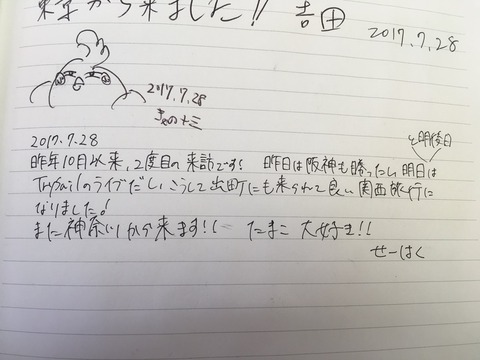 東京から来ました!! 吉田
2017.7.28
2017.7.28
2017.7.28
と明後日
昨年10月以来、2度目の来訪です! 昨日は阪神も勝ったし、明日は
TrySailのライブだしこうして出町にも来られて良い関西旅行に
なりました!
また神奈川から来ます!! たまこ大好き!!
せーはく